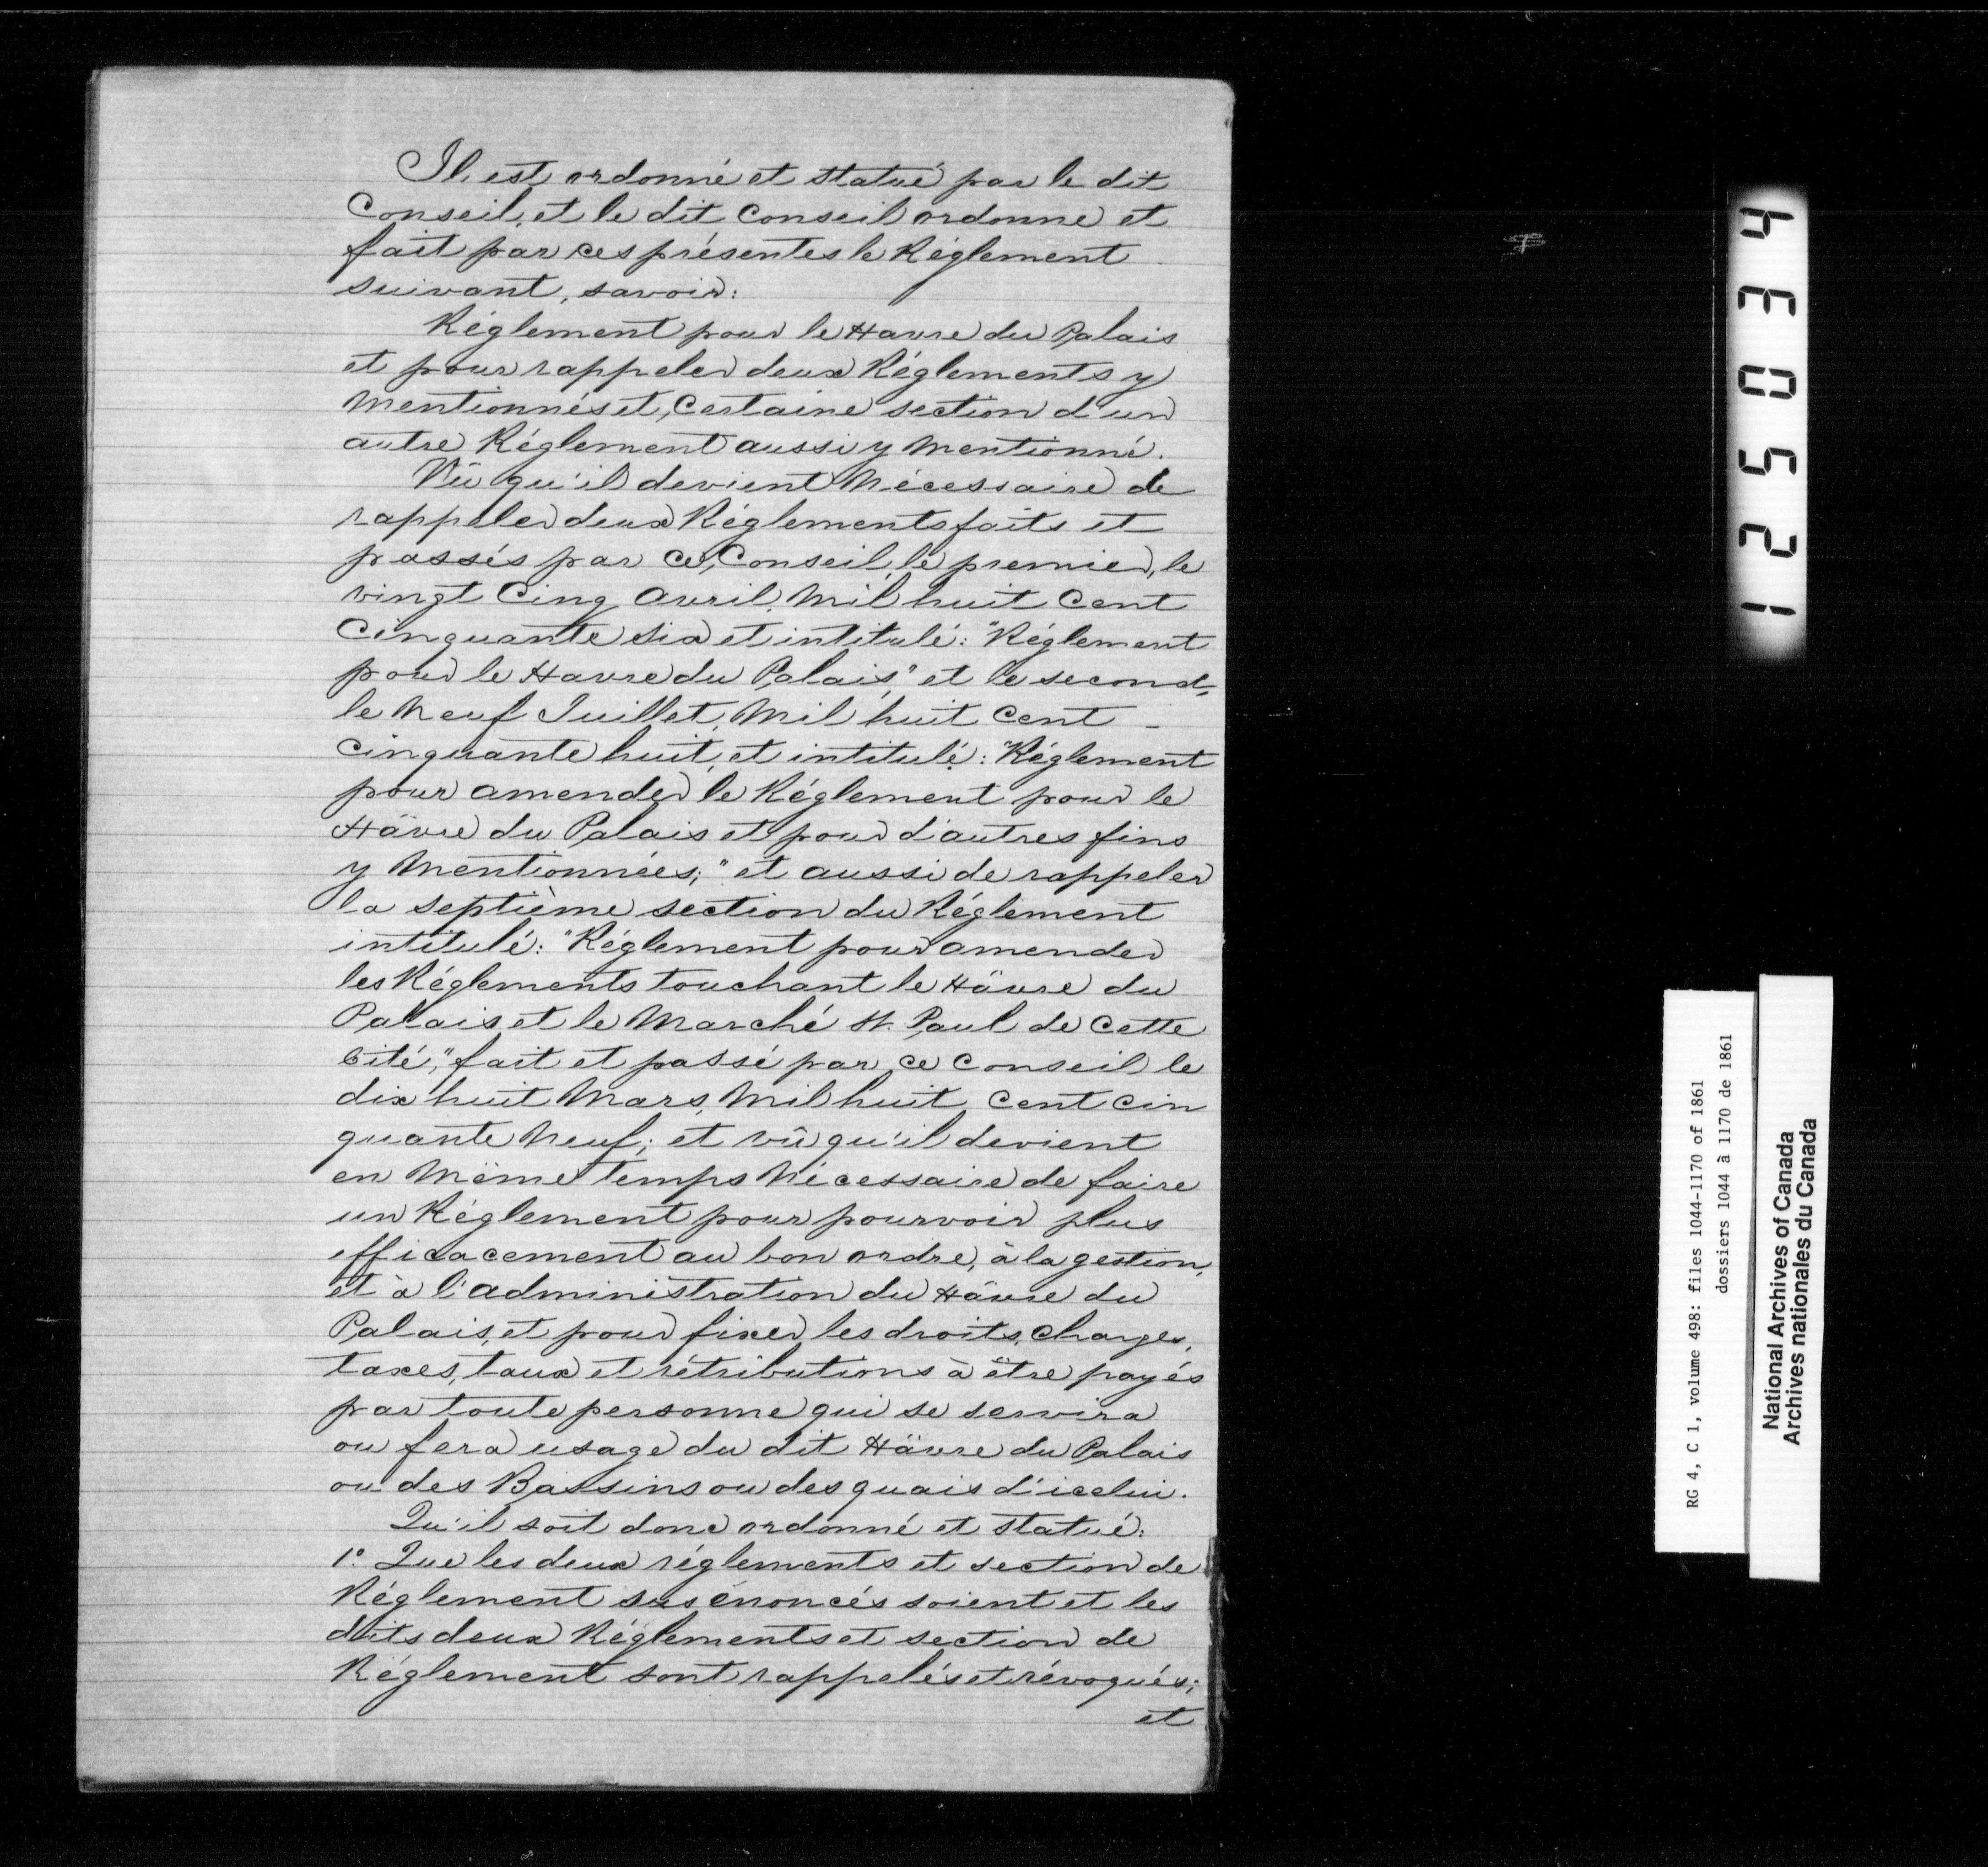 Il est ordonné et statué par le dit
Conseil, et le dit Conseil ordonne et
fait par ces présentes le Réglement
suivant, savoir:
Réglement pour le Havre du Palais
et pour rappeler deux Réglements y
mentionnés et, certaine section d'un
autre Réglement aussi y mentionné.
Vû qu'il devient nécessaire de
rappeler deux Réglements faits et
passés par ce, Conseil, le premier, le
vingt Cinq Avril, mil huit Cent
Cinquante six et intitulé: "Réglement
pour le Havre du Palais," et le second,
le neuf Juillet, mil huit Cent -
cinquante huit, et intitulé: "Réglement
pour amender le Réglement pour le
Hâvre du Palais et pour d'autres fins
y mentionnées;" et aussi de rappeler
la septième section du Réglement
intitulé: "Réglement pour amender
les Réglements touchant le Hâvre du
Palais et le Marché St. Paul de cette
Cité," fait et passé par ce Conseil le
dix huit Mars, mil huit Cent cin
quante neuf; et vû qu'il devient
en même temps nécessaire de faire
un Réglement pour pourvoir plus
efficacement au bon ordre, à la gestion,
et à l'administration du Hâvre du
Palais, et pour fixer les droits, charges,
taxes, taux et rétributions à être payés
par toute personne qui se servira
ou fera usage du dit Hâvre du Palais
ou des Bassins ou des quais d'icelui.
Qu'il soit donc ordonné et statué:
1° Que les deux réglements et section de
Réglement sus énoncés soient et les
dits deux Réglements et section de
Réglement sont rappelés et révoqués;
et
125034
RG 4, C 1, volume 498: files 1044-1170 of 1861
dossiers 1044 à 1170 de 1861
National Archives of Canada
Archives nationales du Canada